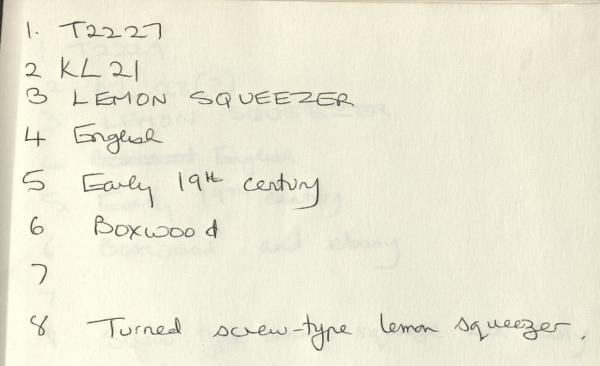 1. T2227
2 KL 21
3 LEMON SQUEEZER
4 English
5 Early 19th century
6 Boxwood
7
8 Turned screw-type lemon squeezer.